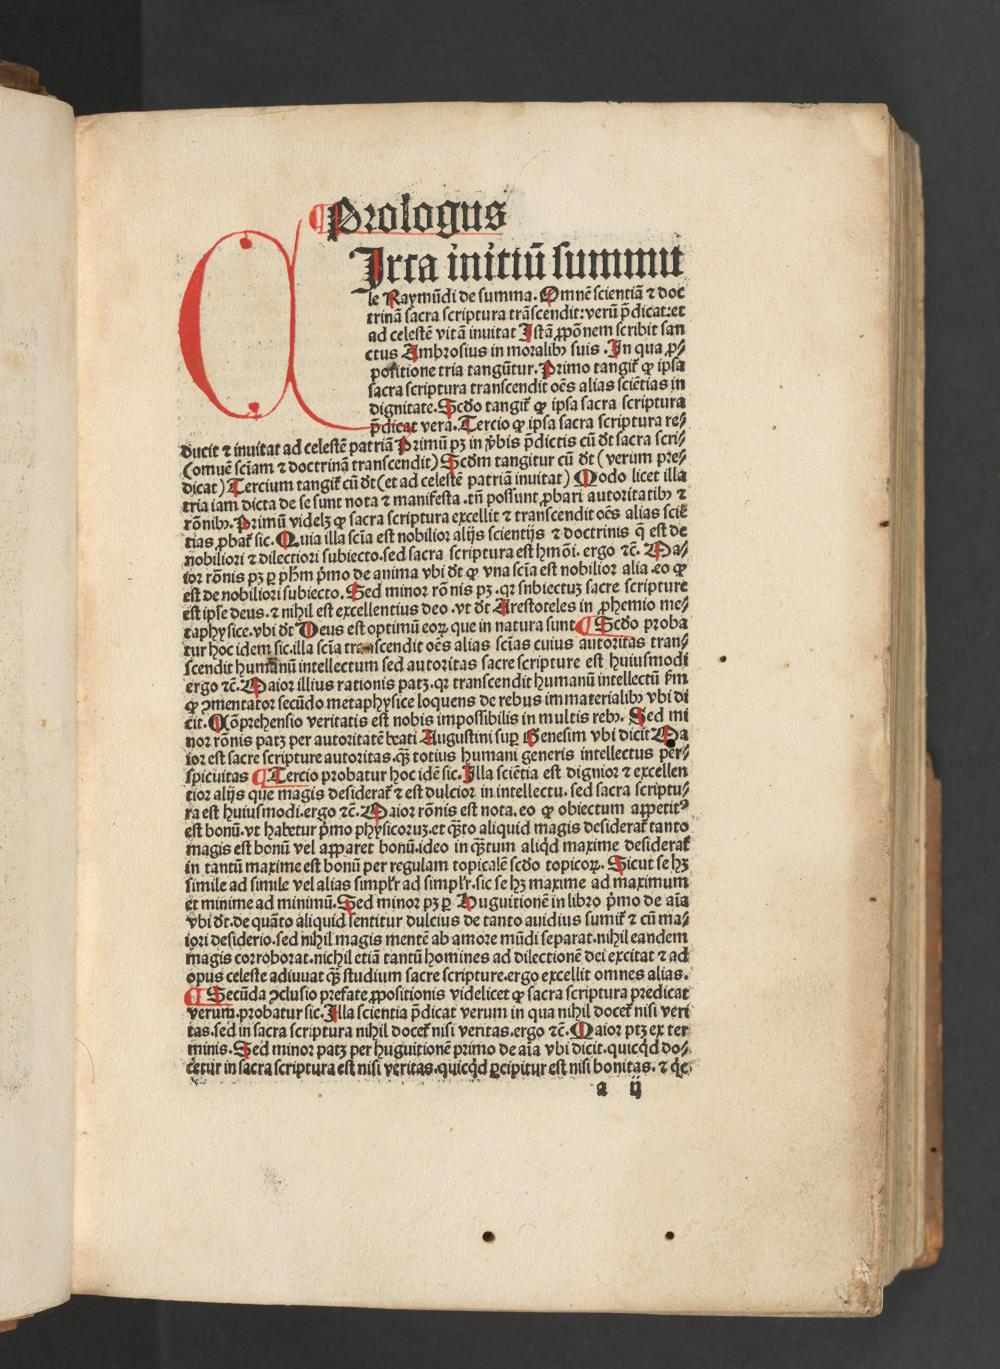 ¶ Prologus
CIrca initiū summul
le Raymūdi de summa. Omnē scientiā ⁊ doc
trinā sacra scriptura trāscendit: verū p̄dicat: et
ad celestē vitā inuitat Istā ꝓpōnem scribit san
ctus Ambrosius in moralibꝫ suis. In qua ꝓ⸗
positione tria tangūtur. Primo tangit̄ ꝙ ipsa
sacra scriptura transcendit oēs alias sciētias in
dignitate. Scd̄o tangit̄ ꝙ ipsa sacra scriptura
p̄dicat vera. Tercio ꝙ ipsa sacra scriptura re⸗
ducit ⁊ inuitat ad celestē patriā Primū pꝫ in v̄bis p̄dictis cū dt̄ sacra scri⸗
(omnē sciam ⁊ doctrinā transcendit) Scd̄m tangitur cū dt̄ (verum pre⸗
dicat) Tercium tangit̄ cū dt̄ (et ad celestē patriā inuitat) Modo licet illa
tria iam dicta de se sunt nota ⁊ manifesta. tn̄ possunt ꝓbari autoritatibꝫ ⁊
rōnibꝫ. Primū videlꝫ ꝙ sacra scriptura excellit ⁊ transcendit oēs alias sciē
tias ꝓbat̄ sic. Quia illa scīa est nobilior alijs scientijs ⁊ doctrinis q̄ est de
nobiliori ⁊ dilectiori subiecto. sed sacra scriptura est hmōi. ergo ⁊c̄. Ma⸗
ior rōnis pꝫ ꝑ ph̄m p̄mo de anima vbi dt̄ ꝙ vna scīa est nobilior alia. eo ꝙ
est de nobiliori subiecto. Sed minor rōnis pꝫ. qꝛ snbiectuꝫ sacre scripture
est ipse deus. ⁊ nihil est excellentius deo. vt dt̄ Arestoteles in ꝓhemio me⸗
taphysice. vbi dt̄ Deus est optimū eoꝝ que in natura sunt ¶ Scd̄o proba
tur hoc idem sic. illa scīa transcendit oēs alias scīas cuius autoritas tran⸗
scendit humanū intellectum sed autoritas sacre scripture est huiusmodi
ergo ⁊c̄. Maior illius rationis patꝫ. qꝛ transcendit humanū intellectū fm̄
ꝙ ꝯmentator secūdo metaphysice loquens de rebus immaterialibꝫ vbi di
cit. Cōprehensio veritatis est nobis impossibilis in multis rebꝫ. Sed mi
nor rōnis patꝫ per autoritatē beati Augustini suꝑ Genesim vbi dicit Ma
ior est sacre scripture autoritas. qꝫ̄ totius humani generis intellectus per⸗
spicuitas ¶ Tercio probatur hoc idē sic. Illa sciētia est dignior ⁊ excellen
tior alijs que magis desiderat̄ ⁊ est dulcior in intellectu. sed sacra scriptu⸗
ra est huiusmodi. ergo ⁊c̄. Maior rōnis est nota. eo ꝙ obiectum appetitꝰ
est bonū. vt habetur p̄mo physicoruꝫ. et qꝫ̄to aliquid magis desiderat̄ tanto
magis est bonū vel apparet bonū. ideo in qꝫ̄tum aliqd̄ maxime desiderat̄
in tantū maxime est bonū per regulam topicalē scd̄o topicoꝝ. Sicut se hꝫ
simile ad simile vel alias simpl̄r ad simpl̄r. sic se hꝫ maxime ad maximum
et minime ad minimū. Sed minor pꝫ ꝑ Huguitionē in libro p̄mo de aīa
vbi dt̄. de quāto aliquid sentitur dulcius de tanto auidius sumit̄ ⁊ cū ma⸗
iori desiderio. sed nihil magis mentē ab amore mūdi separat. nihil eandem
magis corroborat. nichil etiā tantū homines ad dilectionē dei excitat ⁊ ad
opus celeste adiuuat qꝫ̄ studium sacre scripture. ergo excellit omnes alias.
¶ Secūda ꝯclusio prefate ꝓpositionis videlicet ꝙ sacra scriptura predicat
verum. probatur sic. Illa scientia p̄dicat verum in qua nihil docet̄ nisi veri
tas. sed in sacra scriptura nihil docet̄ nisi veritas. ergo ⁊c̄. Maior ptꝫ ex ter
minis. Sed minor patꝫ per huguitionē primo de aīa vbi dicit. quicqd̄ do⸗
cetur in sacra scriptura est nisi veritas. quicqd̄ ꝑcipitur est nisi bonitas. ⁊ qc̄
a ij